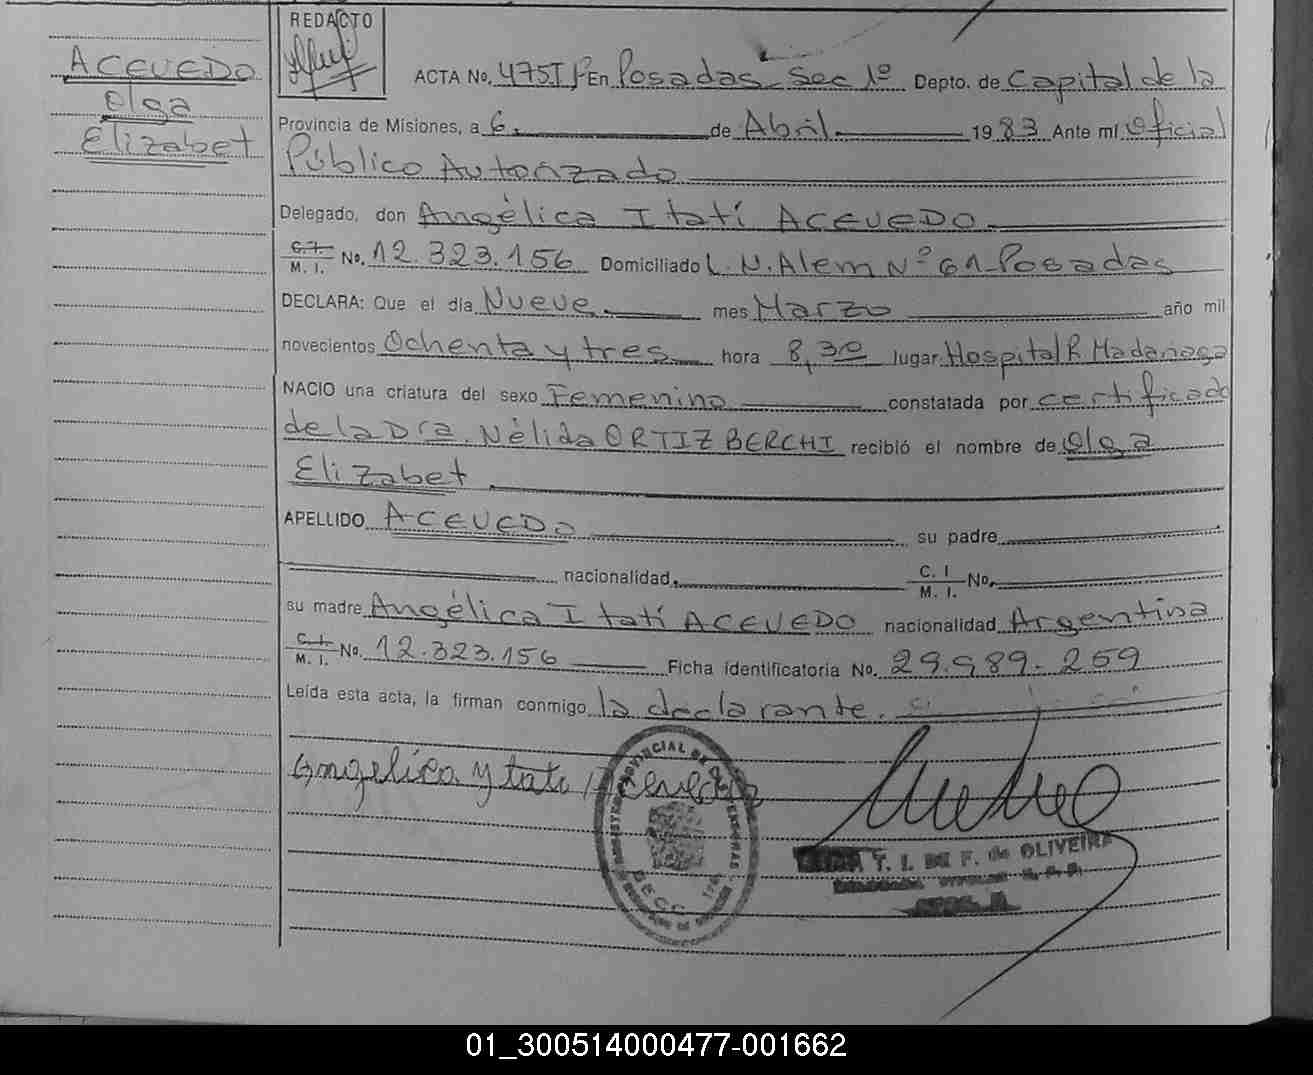 ACEVEDO
Olga
Elizabet
REDACTO
ACTA No. 475 T I En Posadas Sec 1º Depto. de Capital de la
Provincia de Misiones, a 6. de Abril 1983 Ante mí Oficial
Público Autorizado
Delegado, don Angélica Itatí ACEVEDO
C.I. M. I. No. 12.323.156 Domiciliado L. N. Alem Nº 61 - Posadas
DECLARA: Que el día Nueve mes Marzo año mil
novecientos Ochenta y tres hora 8,30 lugar Hospital R. Madariaga
NACIO una criatura del sexo Femenino constatada por certificado
de la Dra. Nélida ORTIZ BERCHI recibió el nombre de Olga
Elizabet
APELLIDO ACEVEDO su padre
nacionalidad C. I M. I. No.
su madre Angélica Itatí ACEVEDO nacionalidad Argentina
C.I. M. I. No. 12.323.156 Ficha identificatoria No. 29.989.259
Leída esta acta, la firman conmigo la declarante.
Angelica Ytati Acevedo
T. I. DE F. de OLIVEIRA
01_300514000477-001662